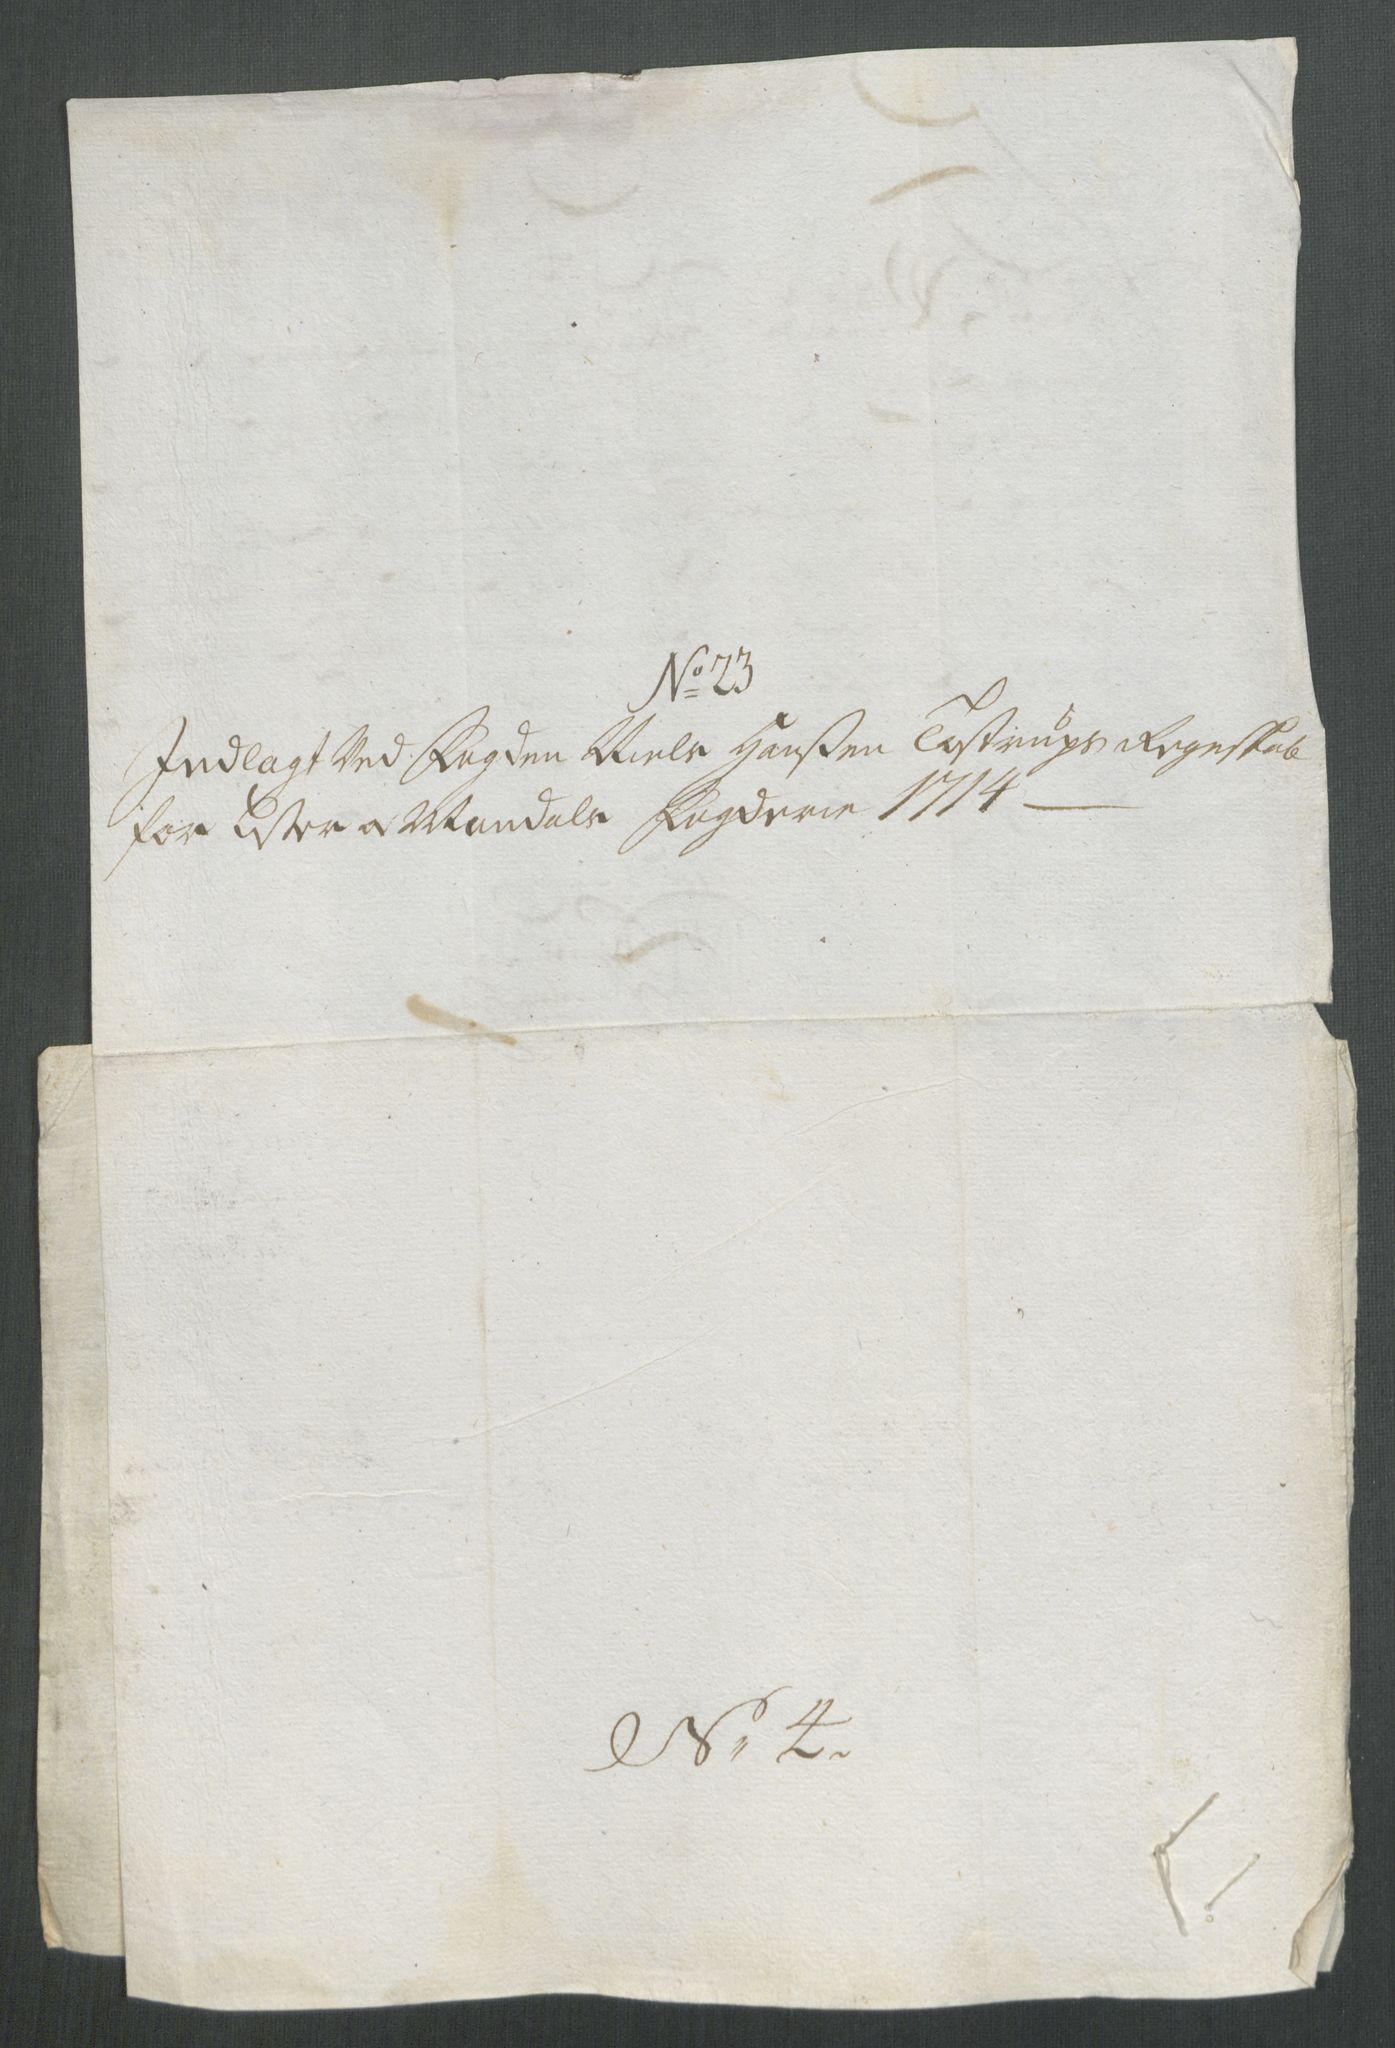 No 23
Indlagt Ved Fogden Niels Hanßen Tostrups Regeskab
for Lister og Mandals Fogderie 1714
No 4.